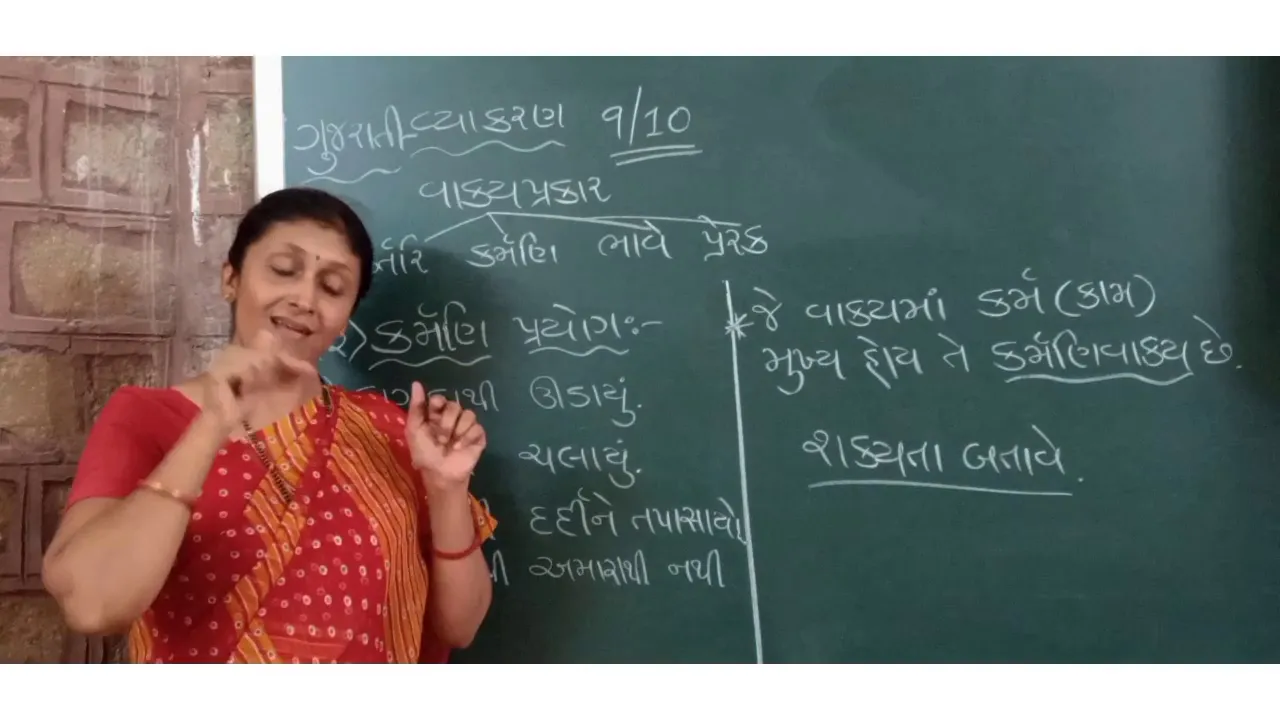 ગુજરાતી-વ્યાકરણ ૧/10
વાક્યપ્રકાર
કર્મણિ ભાવે પ્રેરક
કર્મણિ પ્રયોગ:-
ઊડાયું.
ચલાયું.
દર્દીને તપાસાયો.
અમારાથી નથી
* જે વાક્યમાં કર્મ (કામ)
મુખ્ય હોય તે કર્મણિવાક્ય છે.
શક્યતા બતાવે.